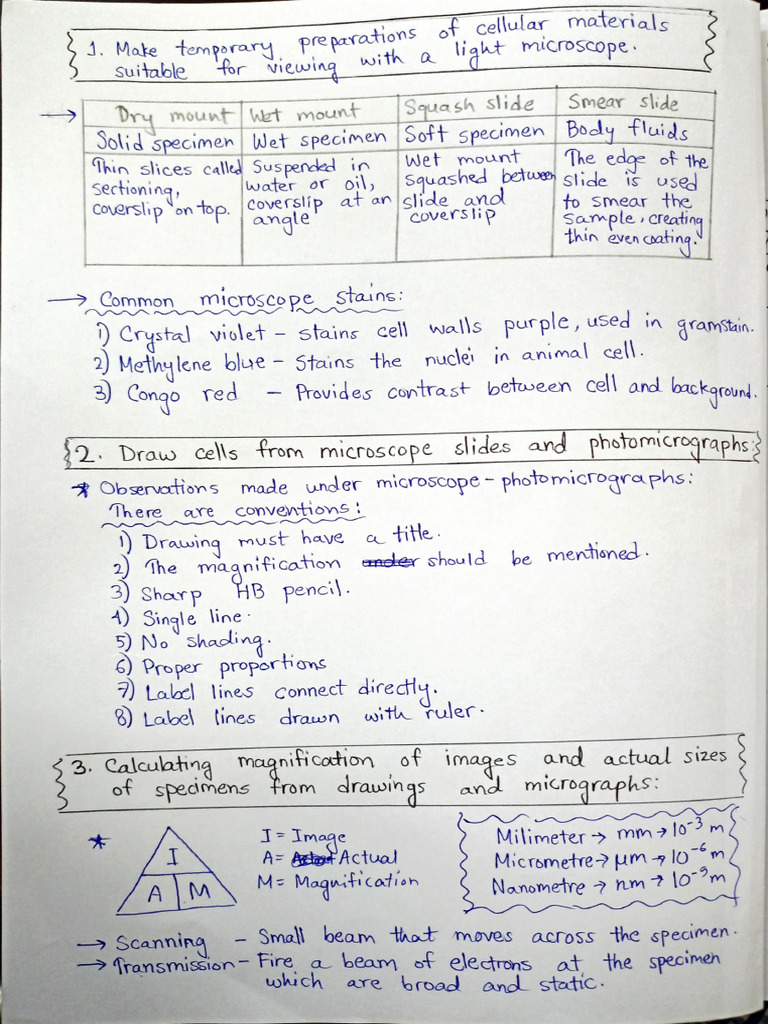 1. Make temporary preparations of cellular materials
suitable for viewing with a light microscope.
→ Dry mount Wet mount Squash slide Smear slide
Solid specimen Wet specimen Soft specimen Body fluids
Thin slices called
sectioning,
coverslip on top.
Suspended in
water or oil,
coverslip at an
angle
Wet mount
squashed between
slide and
coverslip
The edge of the
slide is used
to smear the
sample, creating
thin even coating.
→ Common microscope stains:
1) Crystal violet - stains cell walls purple, used in gramstain.
2) Methylene blue - Stains the nuclei in animal cell.
3) Congo red - Provides contrast between cell and background.
2. Draw cells from microscope slides and photomicrographs:
* Observations made under microscope - photomicrographs:
There are conventions:
1) Drawing must have a title.
2) The magnification under should be mentioned.
3) Sharp HB pencil.
4) Single line.
5) No shading.
6) Proper proportions
7) Label lines connect directly.
8) Label lines drawn with ruler.
3. Calculating magnification of images and actual sizes
of specimens from drawings and micrographs:
*
I
A M
I = Image
A = Actual
M = Magnification
Milimeter → mm → 10⁻³ m
Micrometre → μm → 10⁻⁶ m
Nanometre → nm → 10⁻⁹ m
→ Scanning - Small beam that moves across the specimen.
→ Transmission - Fire a beam of electrons at the specimen
which are broad and static.